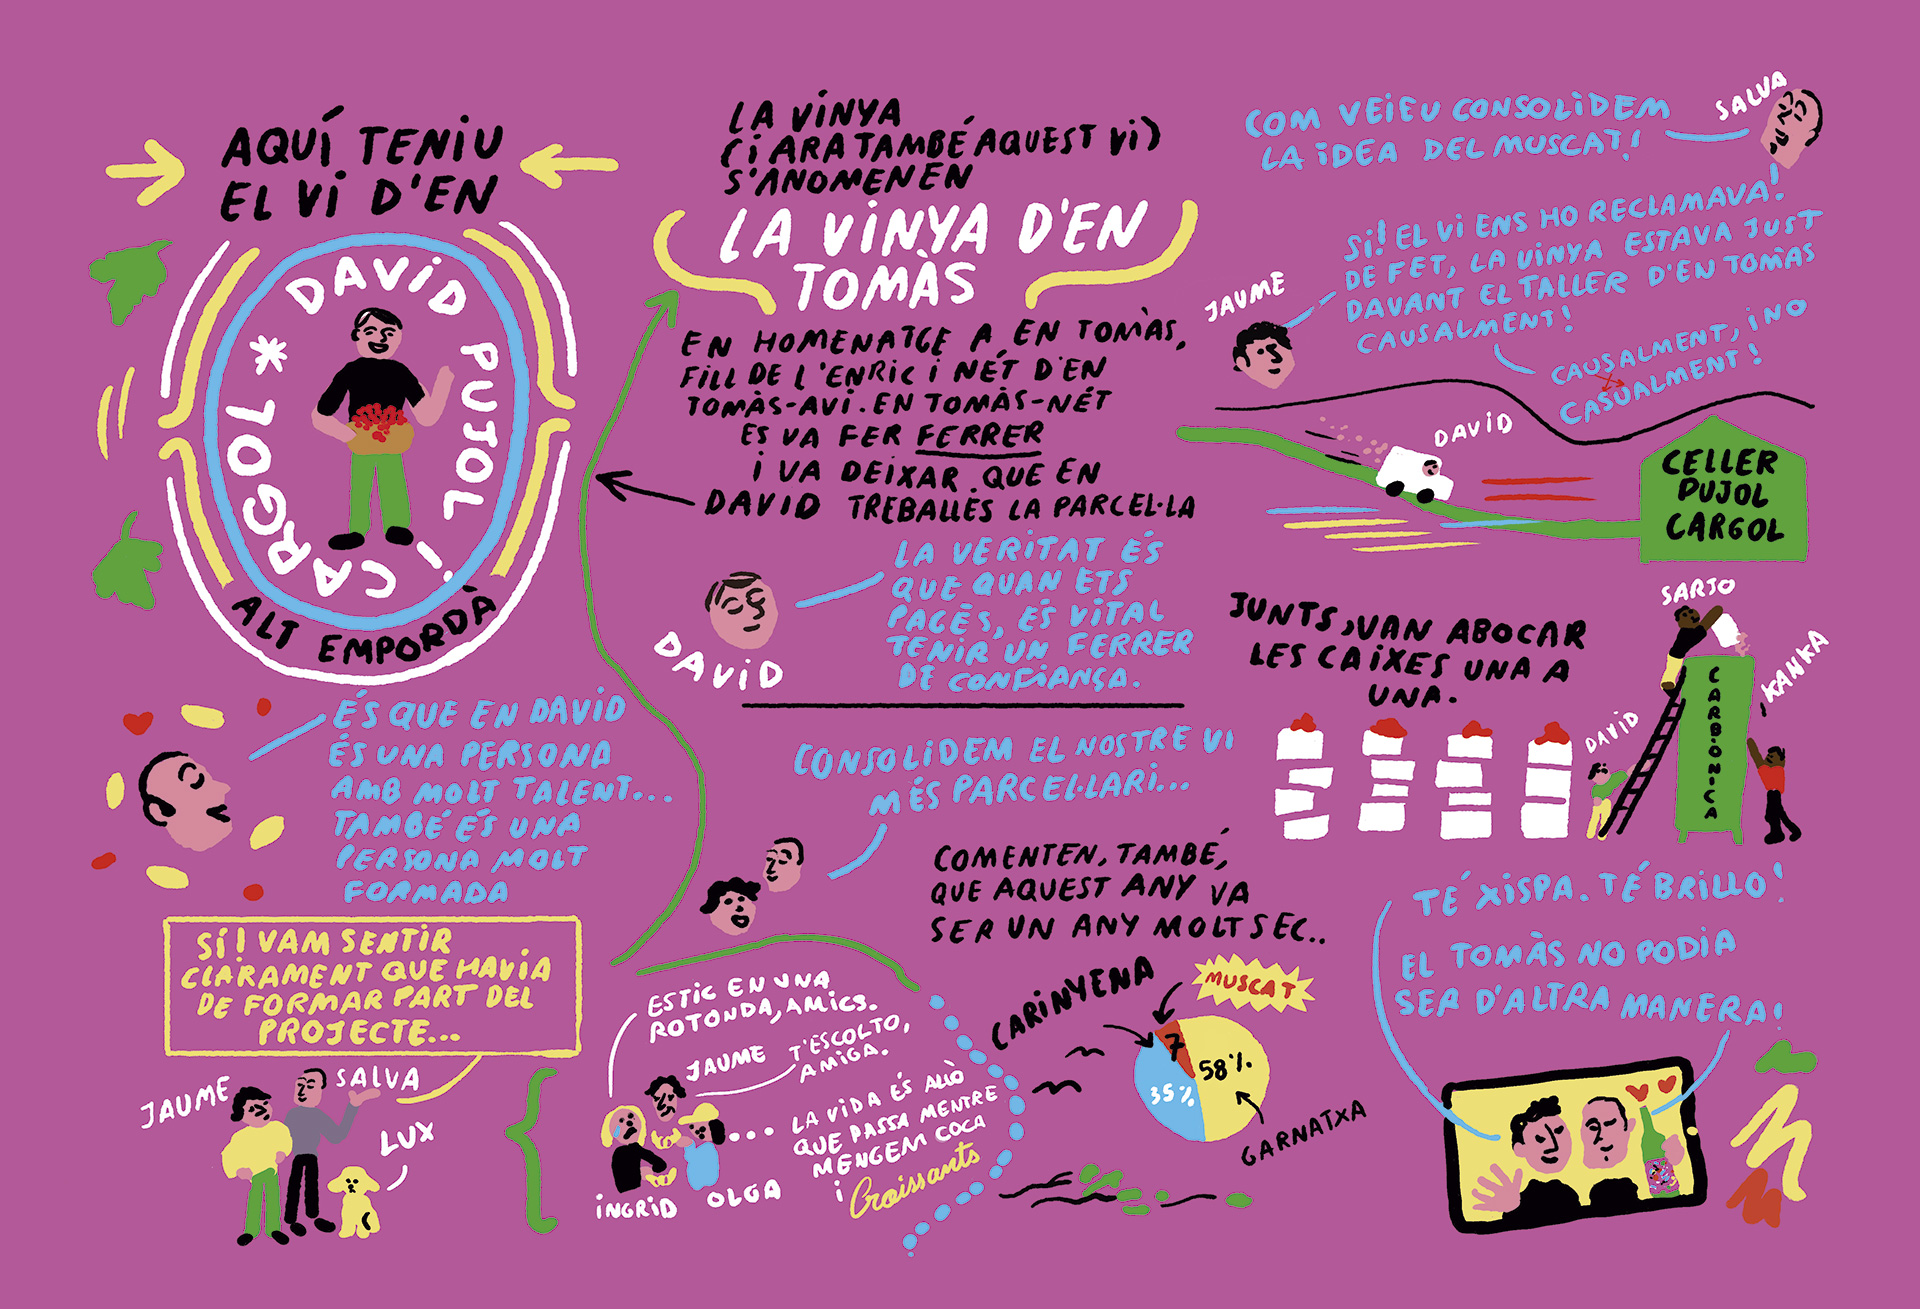 AQUÍ TENIU
EL VI D'EN
DAVID PUJOL i CARGOL *
ALT EMPORDÀ
ÉS QUE EN DAVID
ÉS UNA PERSONA
AMB MOLT TALENT...
TAMBÉ ÉS UNA
PERSONA MOLT
FORMADA
SÍ! VAM SENTIR
CLARAMENT QUE HAVIA
DE FORMAR PART DEL
PROJECTE...
JAUME
SALVA
LUX
LA VINYA
(I ARA TAMBÉ AQUEST VI)
S'ANOMENEN
LA VINYA D'EN
TOMÀS
EN HOMENATGE A EN TOMÀS,
FILL DE L'ENRIC I NÉT D'EN
TOMÀS-AVI. EN TOMÀS-NÉT
ES VA FER FERRER
I VA DEIXAR QUE EN
DAVID TREBALLÉS LA PARCEL·LA
LA VERITAT ÉS
QUE QUAN ETS
PAGÈS, ÉS VITAL
TENIR UN FERRER
DE CONFIANÇA.
DAVID
CONSOLIDEM EL NOSTRE VI
MÉS PARCEL·LARI...
COMENTEN, TAMBÉ,
QUE AQUEST ANY VA
SER UN ANY MOLT SEC..
ESTIC EN UNA
ROTONDA, AMICS.
JAUME
T'ESCOLTO,
AMIGA.
... LA VIDA ÉS ALLÒ
QUE PASSA MENTRE
MENGEM COCA
i Croissants
INGRID
OLGA
CARINYENA
MUSCAT
7
58%
35%
GARNATXA
COM VEIEU CONSOLIDEM
LA IDEA DEL MUSCAT!
SALVA
SI! EL VI ENS HO RECLAMAVA!
DE FET, LA VINYA ESTAVA JUST
DAVANT EL TALLER D'EN TOMÀS
CAUSALMENT!
JAUME
CAUSALMENT, I NO
CASUALMENT!
DAVID
CELLER
PUJOL
CARGOL
JUNTS, VAN ABOCAR
LES CAIXES UNA A
UNA.
SARJO
KANKA
DAVID
CARBÒNICA
TÉ XISPA. TÉ BRILLO!
EL TOMÀS NO PODIA
SER D'ALTRA MANERA!